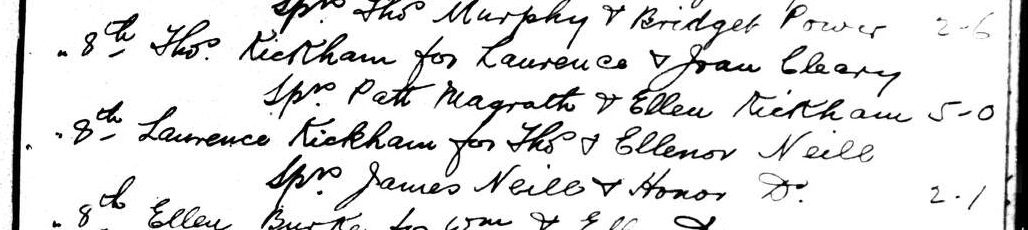 Sprs Thos Murphy & Bridget Power 2-6
" 8th Thos. Kickham for Laurence & Joan Cleary
Sprs Patt Magrath & Ellen Kickham 5-0
" 8th Laurence Kickham for Thos & Ellenor Neill
Sprs James Neill & Honor Do. 2-1
" 8th Ellen Burke for Wm &